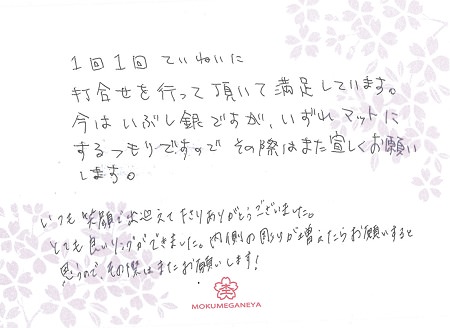 1回1回 ていねいに
打合せを行って頂いて満足しています。
今は いぶし銀ですが、いずれ マットに
するつもりですので その際はまた宜しくお願い
します。
いつも笑顔でお迎えて下さりありがとうございました。
とても良いリングができました。内側の彫りが増えたらお願いすると
思うので、その際はまたお願いします!
MOKUMEGANEYA